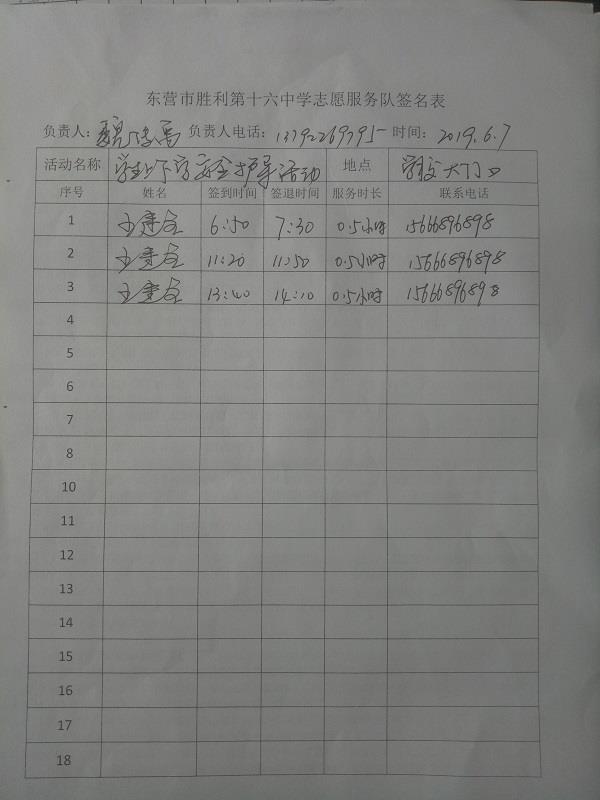 东营市胜利第十六中学志愿服务队签名表
负责人: 负责人电话: 13792269795 时间: 2019.6.7
活动名称 学生上下学安全护导活动 地点 学校大门口
序号 姓名 签到时间 签退时间 服务时长 联系电话
1 王 6:50 7:30 0.5小时 15666896898
2 王 11:20 11:50 0.5小时 15666896898
3 王 13:40 14:10 0.5小时 15666896898
4
5
6
7
8
10
11
12
13
14
15
16
17
18